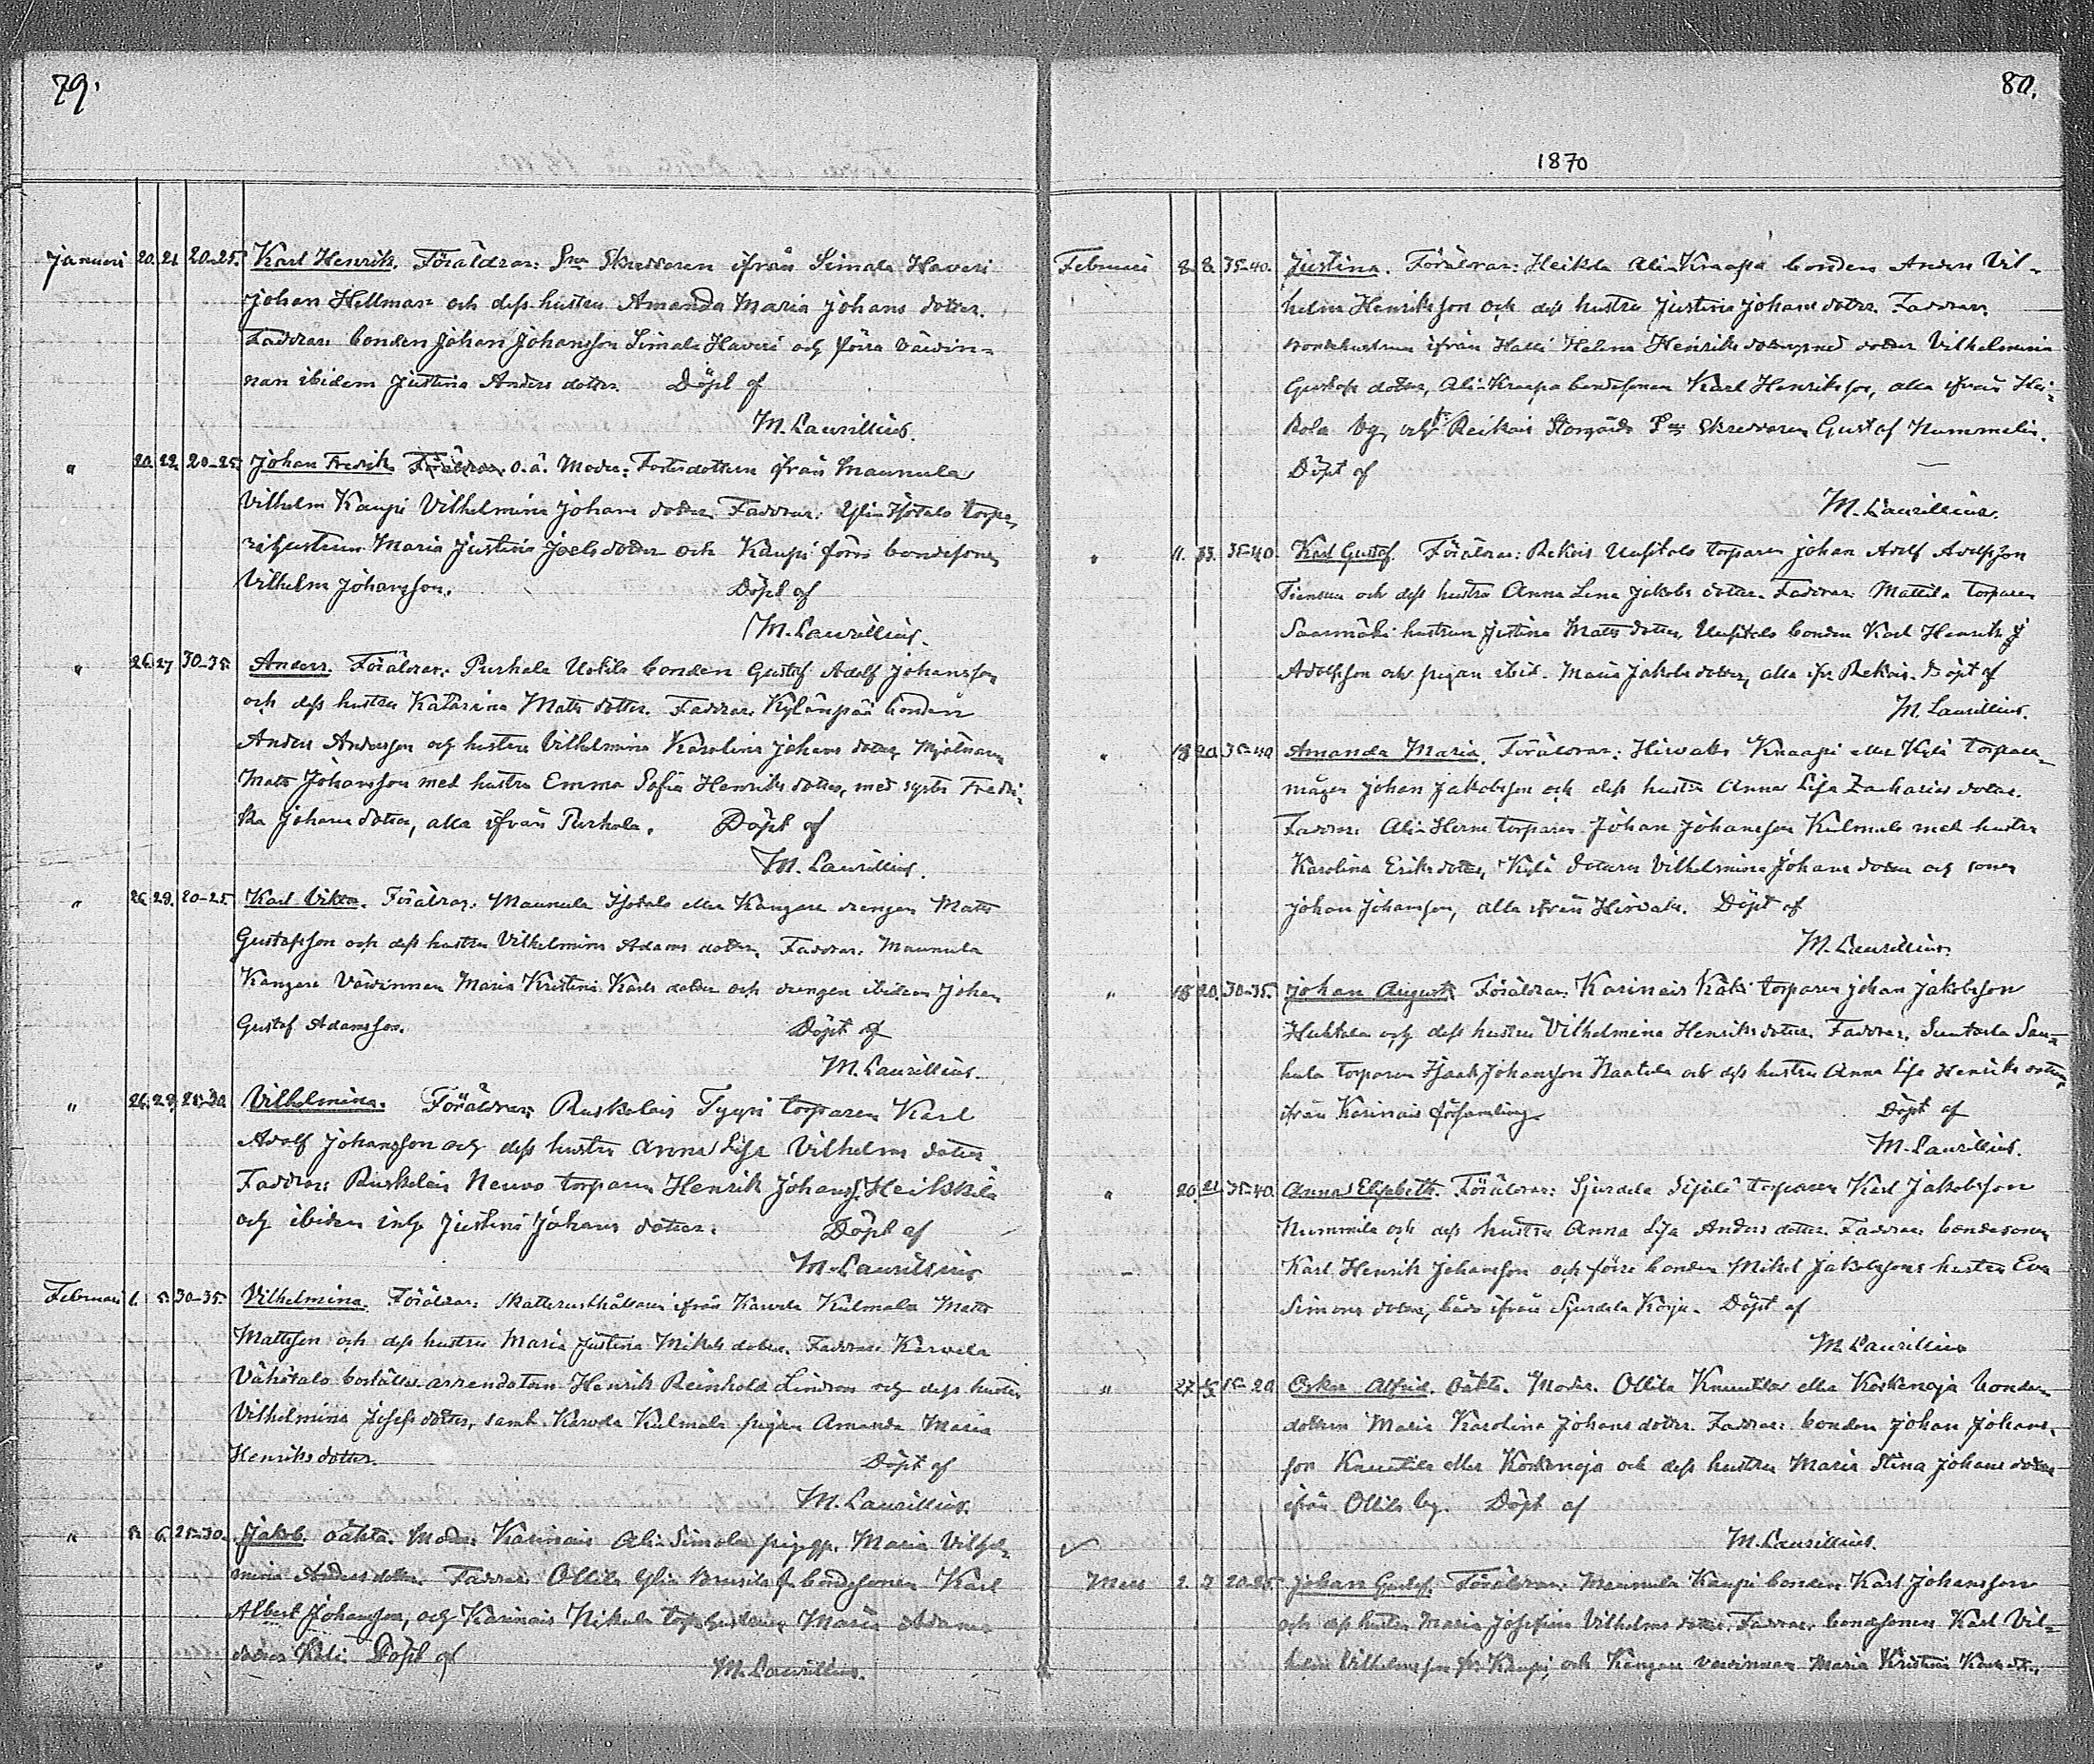 79.
Januari 20. 21. 20-25. Karl Henrik. Föräldrar: Skreddaren ifrån Simala Haveri
Johan Hellman och dess hustru Amanda Maria Johans dotter.
Faddrar: bonden Johan Johansson Simala Haveri och förra värdin-
nan ibidem Justina Anders dotter. Döpt af
M. Laurillius.
" 20. 22. 20-25. Johan Fredrik. Föräldrar o.ä. Moder: ifrån Maunula
Vilhelm Kaupi Vilhelmina Johans dotter. Faddrar: torpa-
rehustrun Maria Justina Joels dotter och Kaupi bondesonen
Vilhelm Johansson. Döpt af
M. Laurillius.
" 26. 27. 30-35. Anders. Föräldrar: Purhala Uotila bonden Gustaf Adolf Johansson
och dess hustru Katarina Mats dotter. Faddrar: Kylänpää bonden
Anders Andersson och hustru Vilhelmina Karolina Johans dotter, Mjölnaren
Mats Johansson med hustru Emma Sofia Henriks dotter, med syster Fredri-
ka Johans dotter, alla ifrån Purhala. Döpt af
M. Laurillius.
" 26. 29. 20-25. Karl Viktor. Föräldrar: Maunula eller Kangare drengen Mats
Gustafsson och dess hustru Vilhelmina Adams dotter. Faddrar: Maunula
Kangare Värdinnan Maria Kristina Karls dotter och drengen ibidem Johan
Gustaf Adamsson. Döpt af
M. Laurillius.
" 26. 29. 25-30. Vilhelmina. Föräldrar: Ruskelais Tyyri torparen Karl
Adolf Johansson och dess hustru Anna Lisa Vilhelms dotter
Faddrar: Ruskelais Neuvo torparen Henrik Johanss. Heikkilä
och ibidem inh. Justina Johans dotter. Döpt af
M. Laurillius
Februari 1. 5. 30-35. Vilhelmina. Föräldrar: Skatterusthållaren ifrån Karvela Kulmala Mats
Mattsson och dess hustru Maria Justina Mikels dotter. Faddrar: Karvela
Vähätalo boställes arrendatorn Henrik Reinhold Lindroos och dess hustru
Vilhelmina Josefs dotter, samt Karvela Kulmala pigan Amanda Maria
Henriks dotter. Döpt af
M. Laurillius.
" 5. 6. 25-30. Jakob oäkta. Moder: Karinais Ali Simola Maria Vilhel-
mina Anders dotter. Faddrar: Ollila Yli Brusila bondesonen Karl
Albert Johansson, och Karinais Nikula Maria Adams
dotter Döpt af
M. Laurillius.
80.
1870
Februari 8. 8. 35-40. Justina. Föräldrar: Heikola Ali-Knaapa bonden Anders Vil-
helm Henriksson och dess hustru Justina Johans dotter. Faddrar:
ifrån Helena Henriks dotter med dotter Vilhelmina
Gustafs dotter, Ali-Knaapa bondesonen Karl Henriksson, alla ifrån Hei-
kola by, och Reikois Skreddaren Gustaf Nummelin.
Döpt af
M. Laurillius.
" 11. 13. 35-40. Karl Gustaf. Föräldrar: Rekois Uusitalo torparen Johan Adolf Adolfsson
och dess hustru Anna Lena Jakobs dotter. Faddrar: Mattila torparen
Saarimäki hustrun Justina Mats dotter, Uusitalo bonden Karl Henrik J
Adolfsson och pigan ibid. Maria Jakobs dotter, alla ifr. Rekois. Döpt af
M. Laurillius.
" 18. 20. 35-40. Amanda Maria. Föräldrar: Hirvaks Knaapi eller Kylä torpare-
mågen Johan Jakobsson och dess hustru Anna Lisa Zacharias dotter.
Faddrar: Ali-Herne torparen Johan Johansson Kulmala med hustru
Karolina Eriks dotter, Kylä dottern Vilhelmina Johans dotter och sonen
Johan Johansson, alla ifrån Hirvaks. Döpt af
M. Laurillius.
" 18. 20. 30-35. Johan August. Föräldrar: Karinais Käki torparen Johan Jakobsson
Huhtala och dess hustru Vilhelmina Henriks dotter. Faddrar: Suutarla Sau-
hula torparen Isaak Johansson Raatala och dess hustru Anna Lisa Henriks dotter,
ifrån Karinais församling. Döpt af
M. Laurillius.
" 20. 21. 35-40. Anna Elisabeth. Föräldrar: Sjurdela Sipilä torparen Karl Jakobsson
Nummila och dess hustru Anna Lisa Anders dotter. Faddrar: bondesonen
Karl Henrik Johansson och förre bonden Mikel Jakobssons hustru Eva
Simons dotter, både ifrån Sjurdela Korju. Döpt af
M. Laurillius
" 27. 15-20 Oskar Alfrid. Oäkta. Moder: Ollila Knuutila eller Koskenoja bonde-
dottern Maria Karolina Johans dotter. Faddrar: bonden Johan Johans-
son Knuutila eller Koskenoja och dess hustru Maria Stina Johans dotter
ifrån Ollila by. Döpt af
M. Laurillius.
Mars 2. 3. 20-25. Johan Gustaf. Föräldrar: Maunula Kaupi bonden Karl Johansson
och dess hustru Maria Josefina Vilhelms dotter. Faddrar: bondesonen Karl Vil-
helm Vilhelmsson fr. Kaupi, och Kangare värdinnan Maria Kristina Karls dt.,